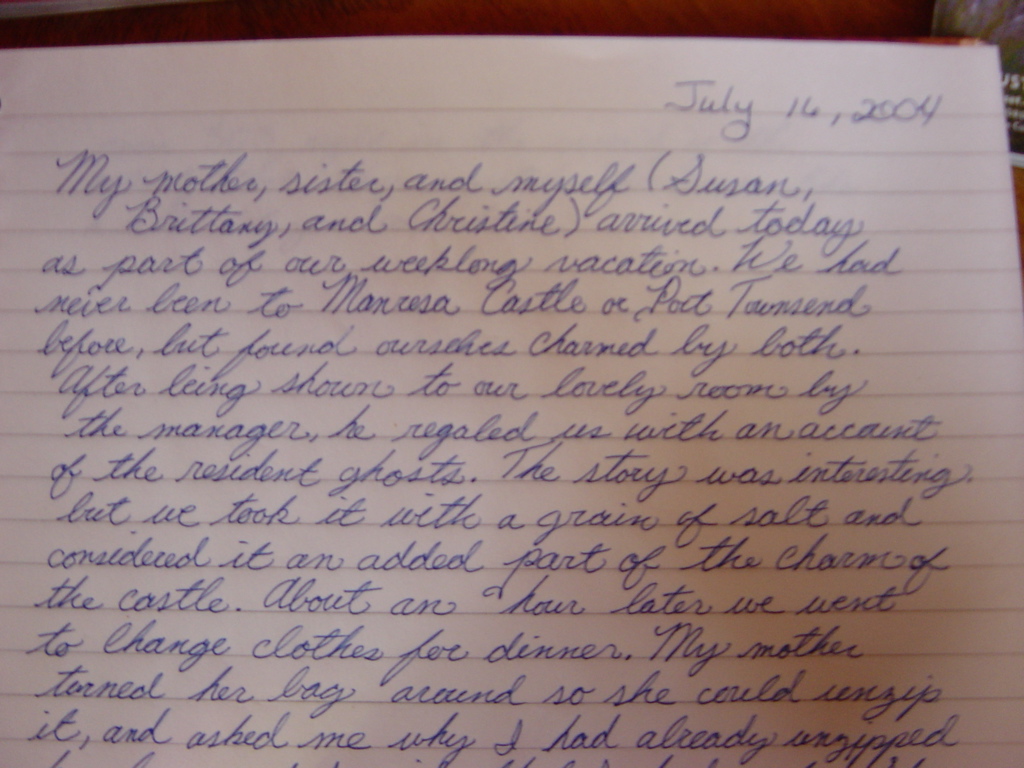 July 16, 2004
My mother, sister, and myself (Susan,
Brittany, and Christine) arrived today
as part of our weeklong vacation. We had
never been to Manresa Castle or Port Townsend
before, but found ourselves charmed by both.
After being shown to our lovely room by
the manager, he regaled us with an account
of the resident ghosts. The story was interesting.
but we took it with a grain of salt and
considered it an added part of the charm of
the castle. About an hour later we went
to change clothes for dinner. My mother
turned her bag around so she could unzip
it, and asked me why I had already unzipped